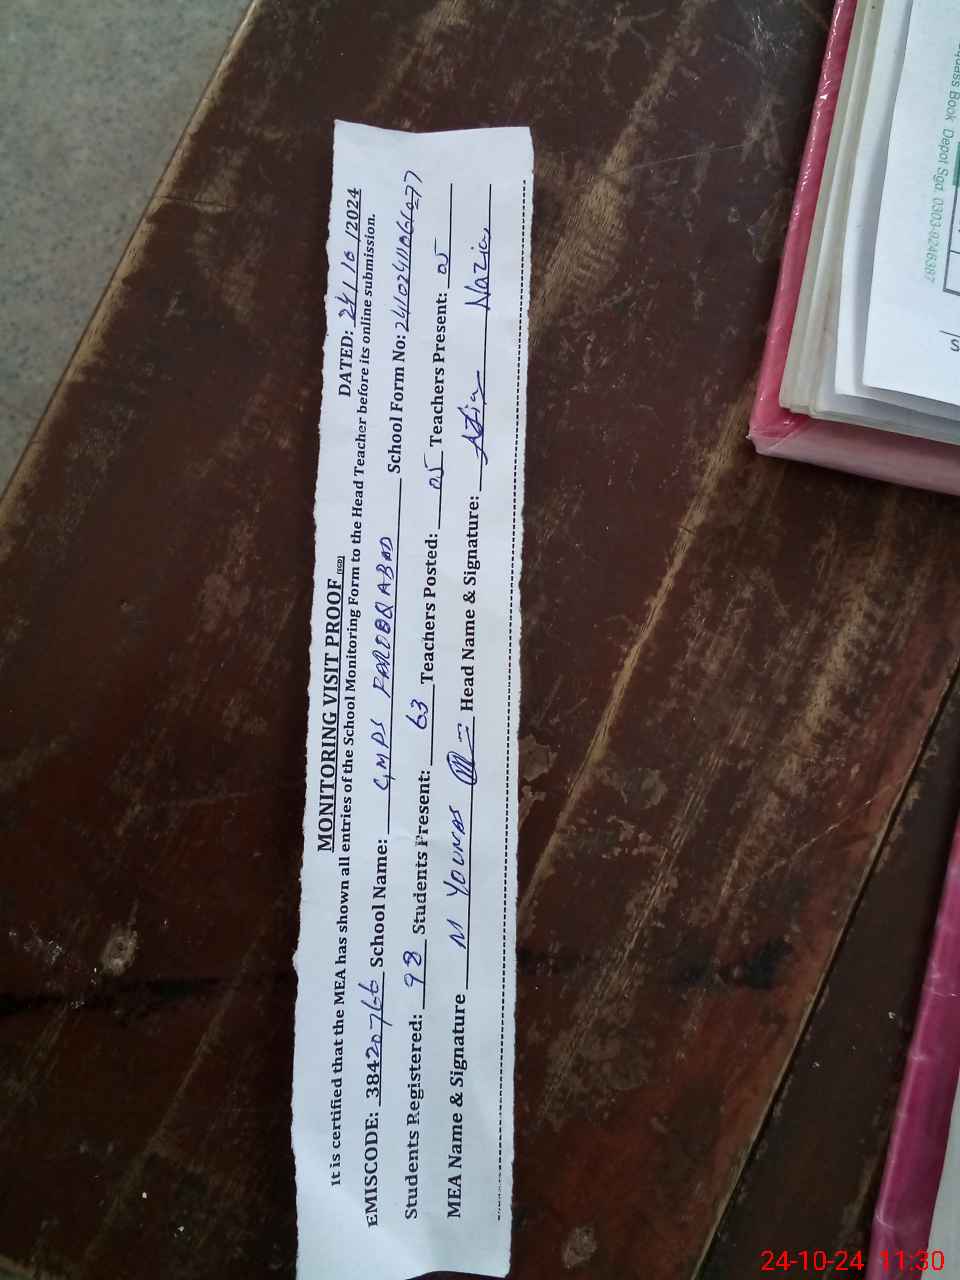 MONITORING VISIT PROOF (SGD)
DATED: 24/10/2024
It is certified that the MEA has shown all entries of the School Monitoring Form to the Head Teacher before its online submission.
EMISCODE: 38420766 School Name: GMPS FAROOQABAD School Form No:
Students Registered: 98 Students Present: 63 Teachers Posted: 05 Teachers Present: 05
MEA Name & Signature M YOUNAS Head Name & Signature: Nazia
Book Depot Sgd. 0303-9246387
24-10-24 11:30